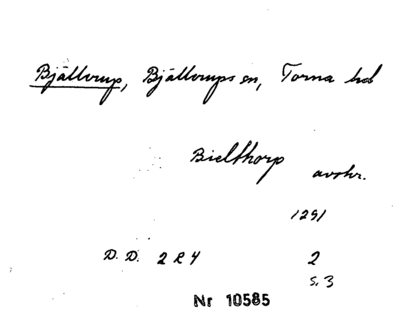 Bjällerup, Bjällerups sn, Torna hd
Bielthorp avskr.
1291
D. D. 2 R 4 2
s. 3
Nr 10585